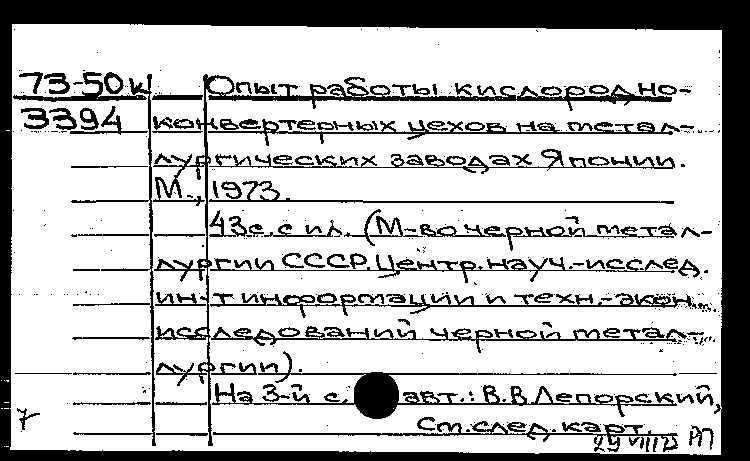 73-50к Опыт работы кислородно-
3394 конвертерных цехов на метал-
лургических заводах Японии.
М., 1973.
43с. с ил. (М-во черной метал-
лургии СССР. Центр. науч.-исслед.
ин-т информации и техн.-экон.
исследований черной метал-
лургии).
На 3-й с. авт.: В.В. Лепорский,
См. след. карт.
7 29 VIII 73